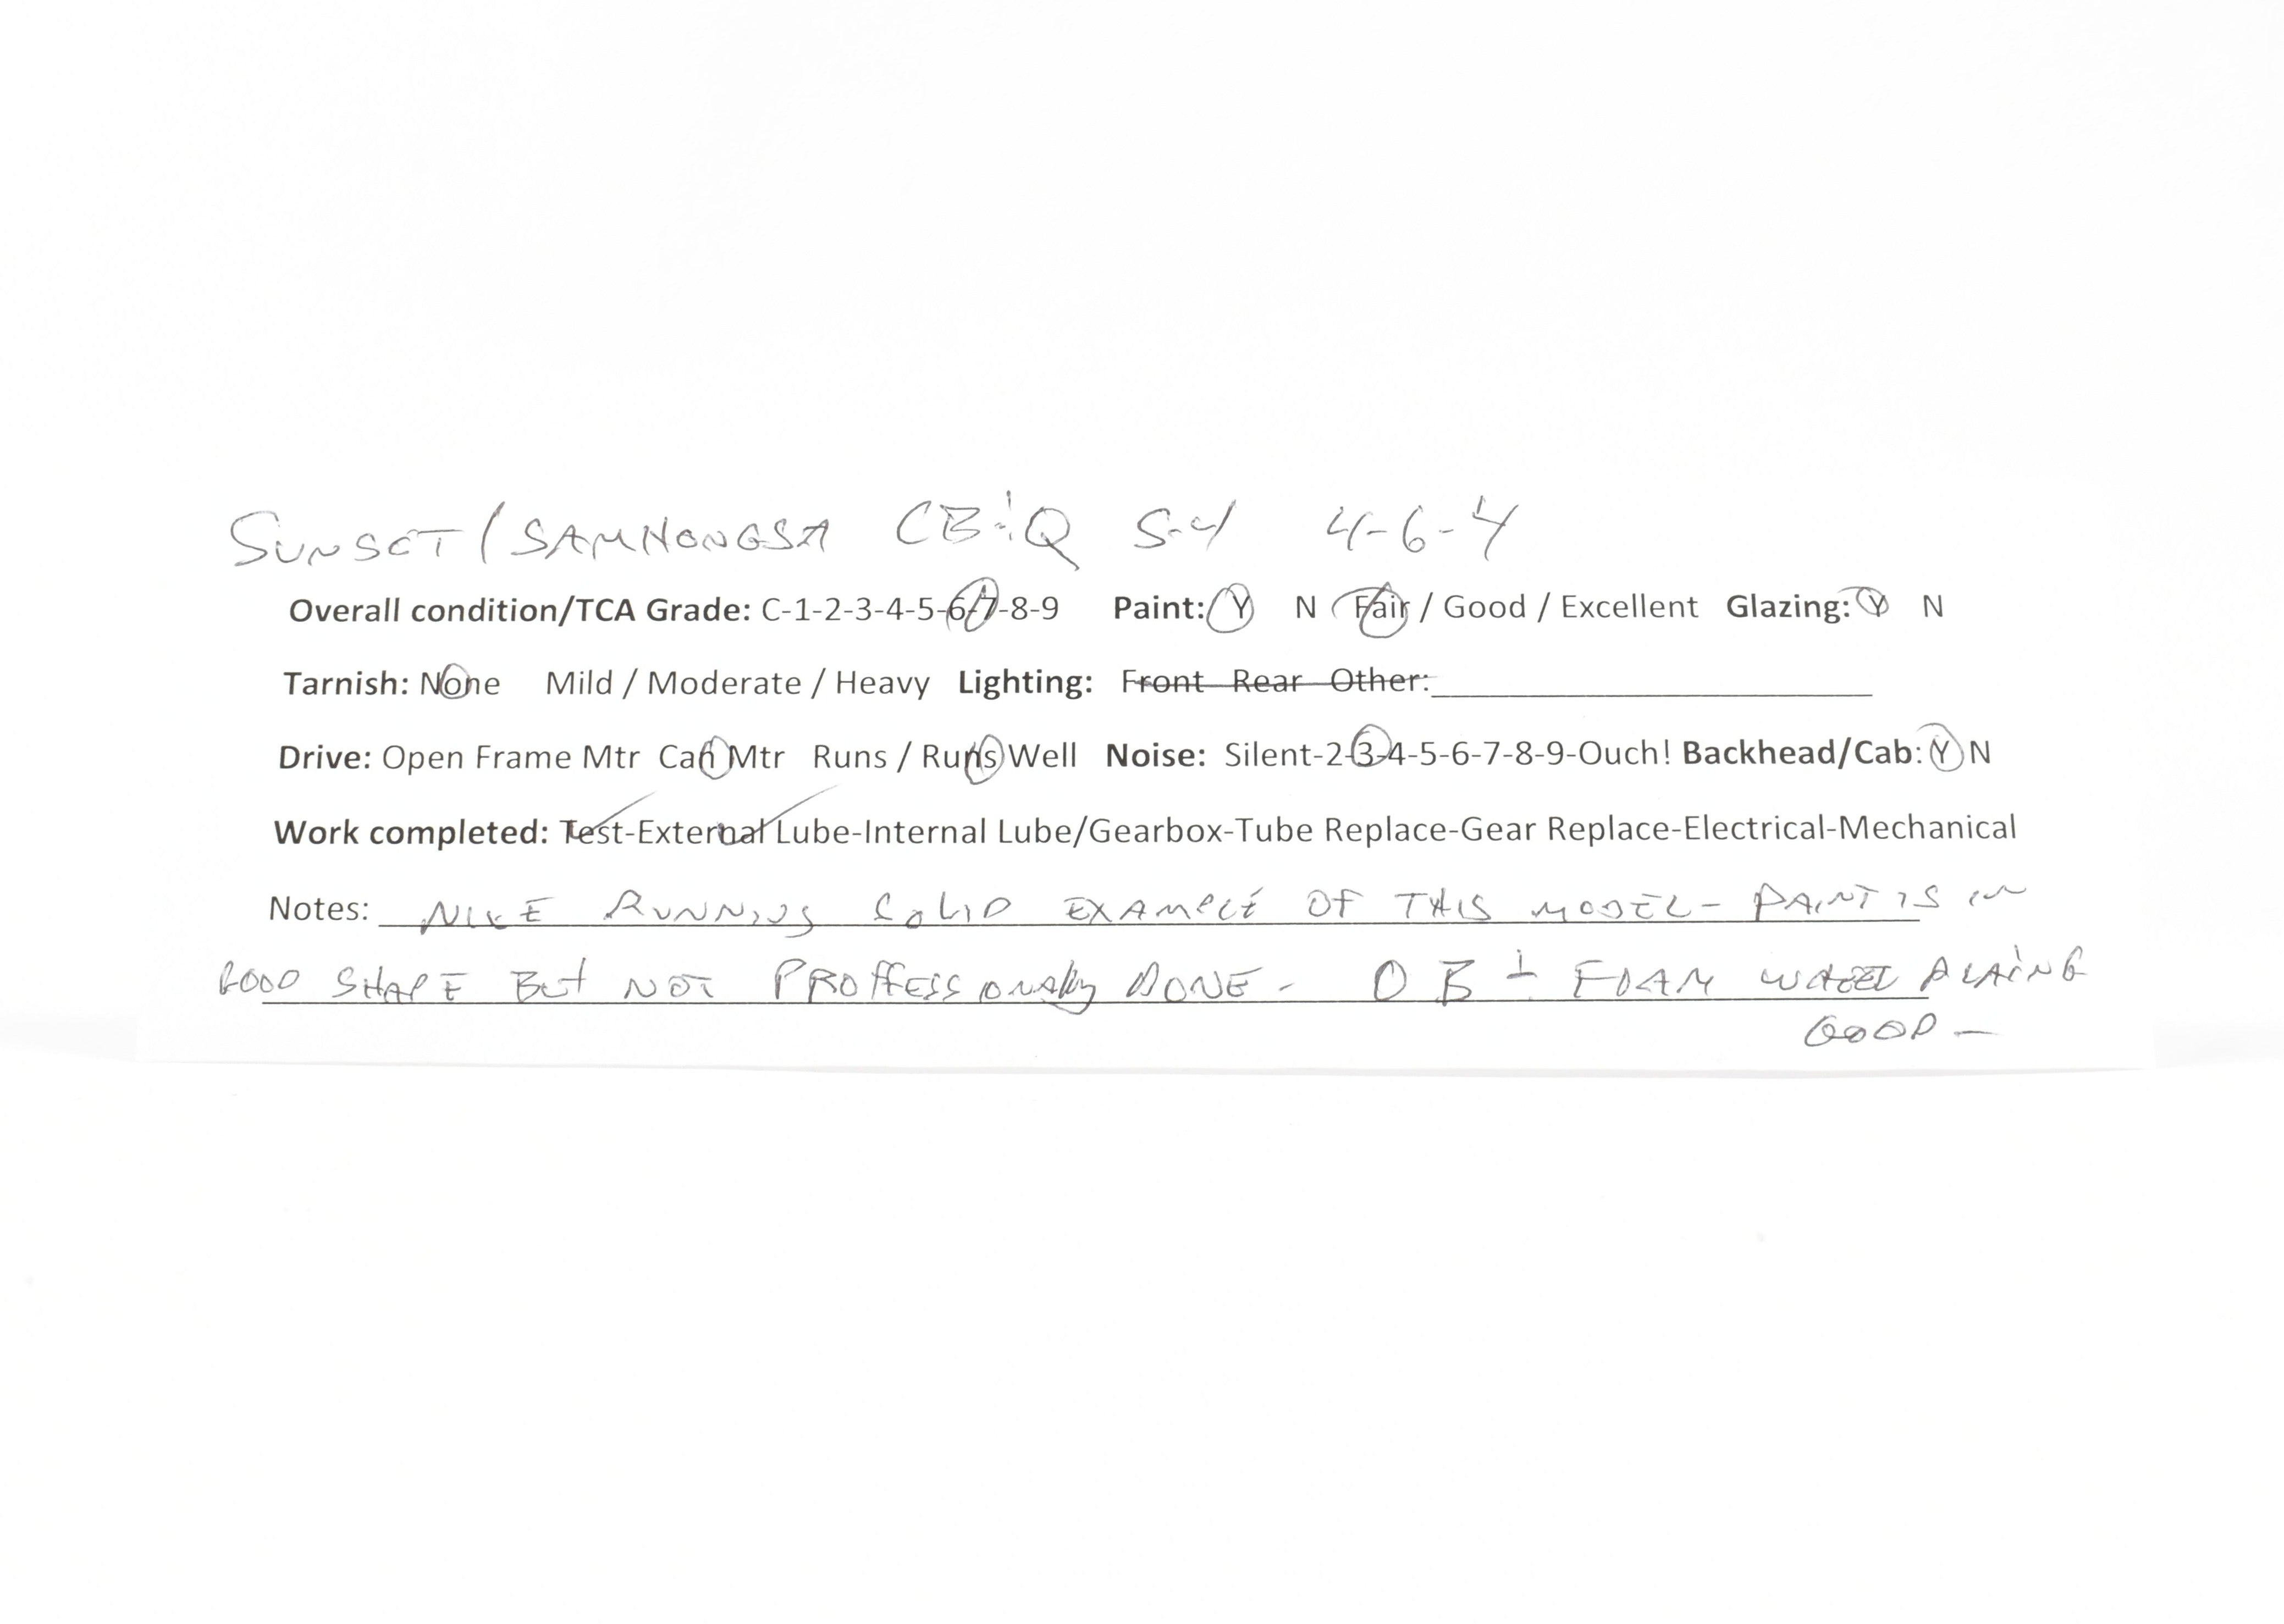 SUNSET / SAMHONGSA CB&Q S-4 4-6-4
Overall condition/TCA Grade: C-1-2-3-4-5-6-7-8-9 Paint: Y N Fair / Good / Excellent Glazing: Y N
Tarnish: None Mild / Moderate / Heavy Lighting: Front Rear Other:
Drive: Open Frame Mtr Can Mtr Runs / Runs Well Noise: Silent-2-3-4-5-6-7-8-9-Ouch! Backhead/Cab: Y N
Work completed: Test-External Lube-Internal Lube/Gearbox-Tube Replace-Gear Replace-Electrical-Mechanical
Notes: NICE RUNNING SOLID EXAMPLE OF THIS MODEL - PAINT IS IN
GOOD SHAPE BUT NOT PROFFESSIONALLY DONE - OB + FOAM
GOOD -